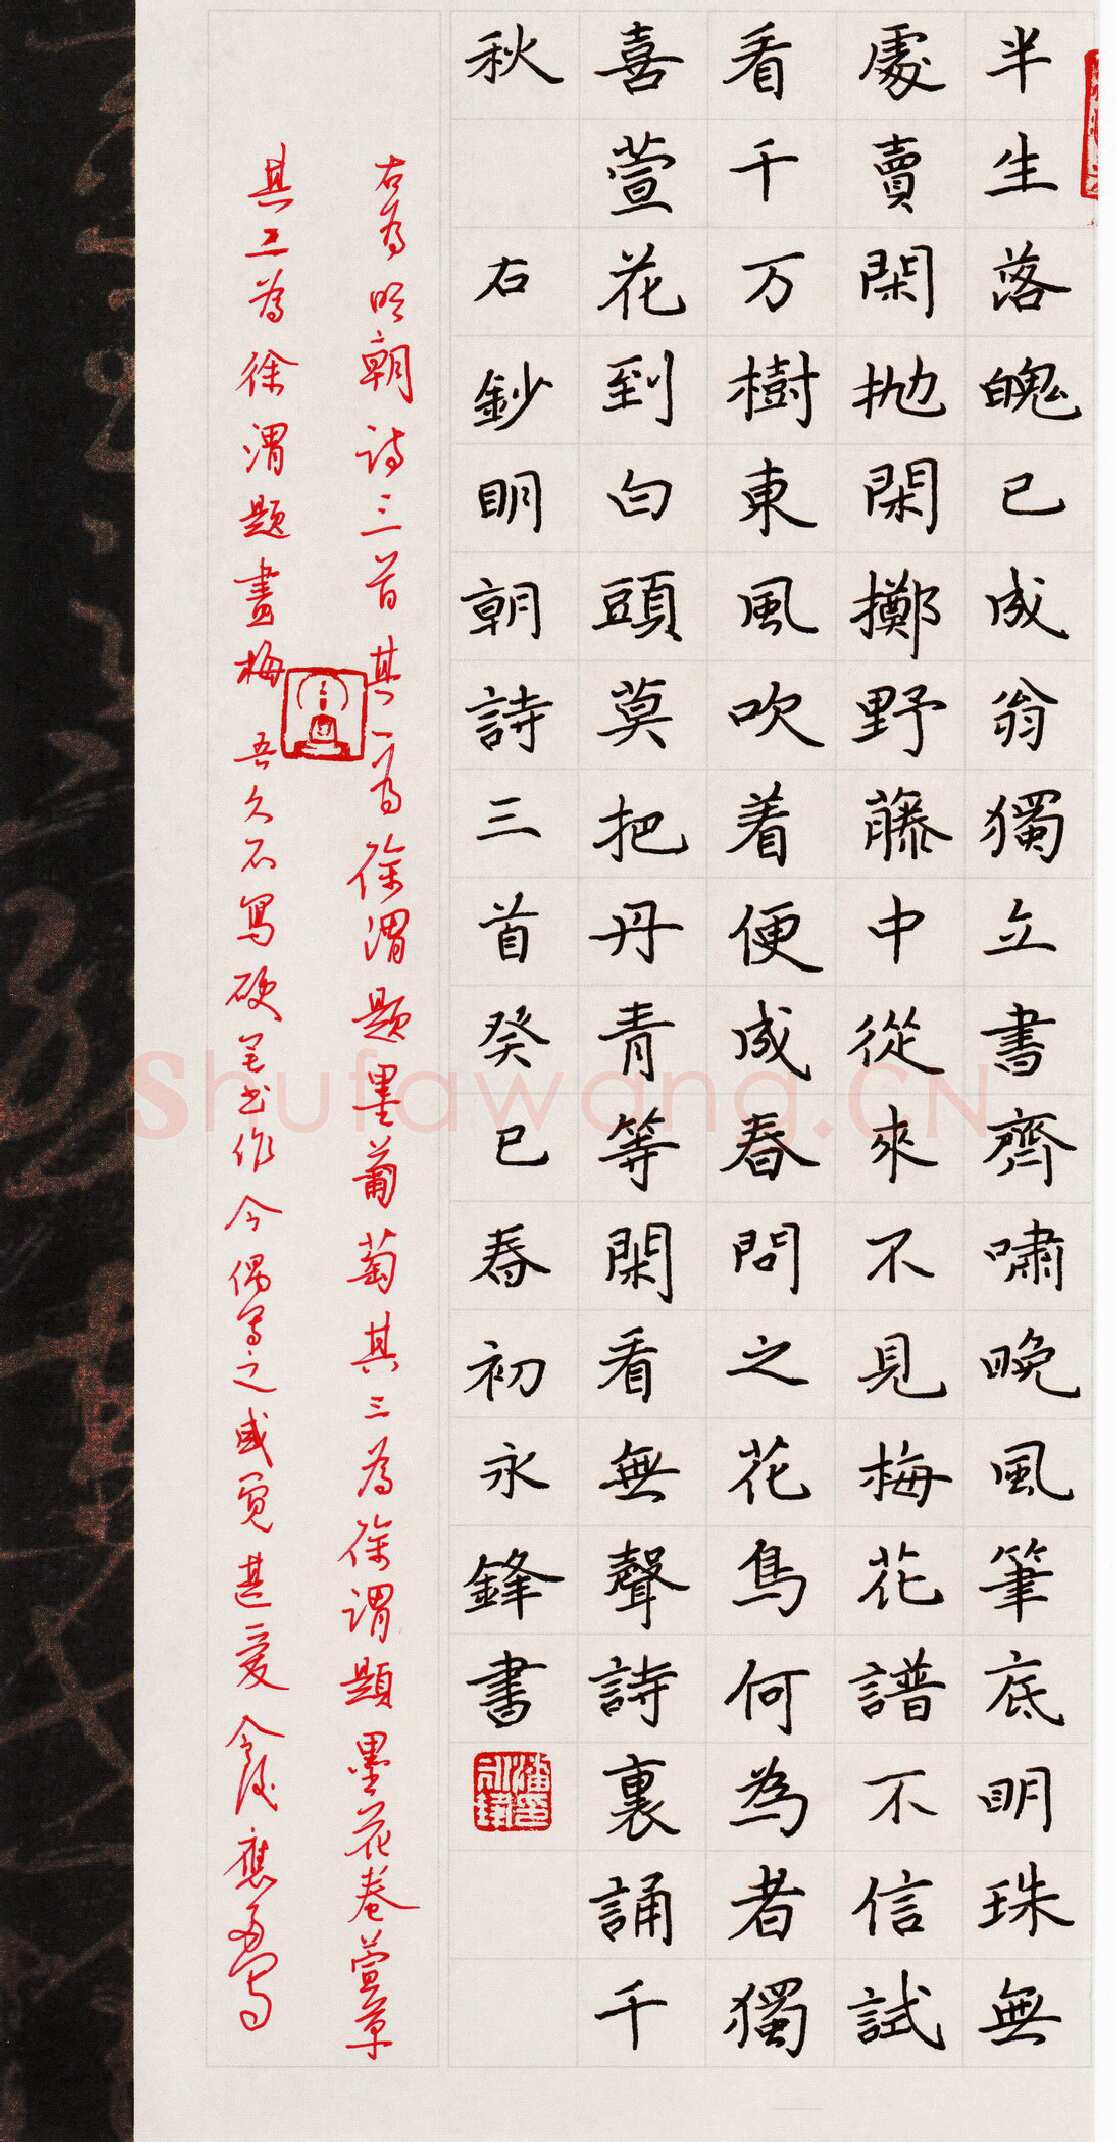 半生落魄已成翁獨立書齊嘯晚風筆底明珠無
處賣閑抛閑擲野藤中從來不見梅花譜不信試
看千万樹東風吹着便成春問之花鳥何為者獨
喜萱花到白頭莫把丹青等閑看無聲詩裏誦千
秋
右鈔明朝詩三首癸巳春初永鋒書
右為明朝詩三首其一為徐渭題墨葡萄其三為徐渭題墨花卷萱草
其二為徐渭題畫梅 吾久不寫硬笔书作今偶寫之感覔甚爱
Shufawang.CN